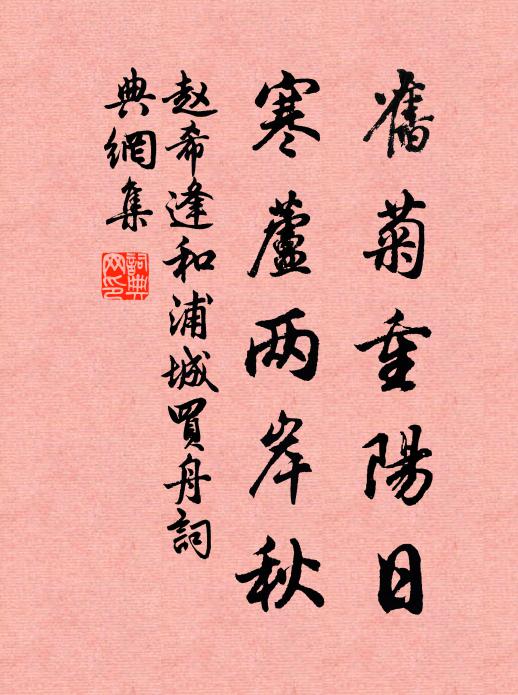 舊菊重陽日
寒蘆两岸秋
赵希逢和浦城買舟詞
典網集
詞典網印